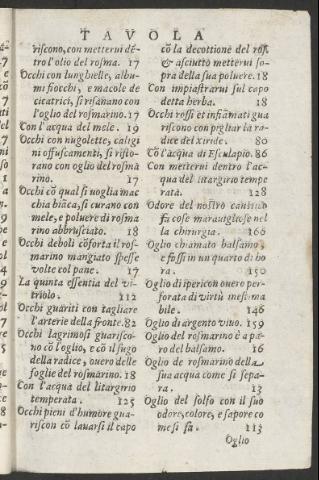 TAVOLA
riscono, con metterui dē
tro l'olio del rosma. 17
Occhi con lunghielle, albu-
mi fiocchi, e macole de
cicatrici, si risanano con
l'oglio del rosmarino. 17
Con l'acqua del mele. 19
Occhi con nugolette, caligi
ni offuscamenti, si risto-
rano con oglio del rosma
rino. 17
Occhi cō qual si uoglia mac
chia biāca, si curano con
mele, e poluere di rosma
rino abbrusciato. 18
Occhi deboli cōforta il ros-
marino mangiato spesse
volte col pane. 17
La quinta essentia del vi-
triolo. 112
Occhi guariti con tagliare
l'arterie della fronte. 82
Occhi lagrimosi guarisco-
no cō l'oglio, e cō il sugo
della radice, ouero delle
foglie del rosmarino. 18
Con l'acqua del litargirio
temperata. 125
Occhi pieni d'humore gua-
riscon cō lauarsi il capo
cō la decottione del ros.
& asciutto metterui so-
pra della sua poluere. 18
Con impiastrarui sul capo
detta herba. 18
Occhi rossi et infiāmati gua
riscono con pigliar la ra-
dice del xiride. 80
Cō l'acqua di Esculapio. 86
Con metterui dentro l'ac-
qua del litargirio tempe
rata. 128
Odore del nostro cantico
fa cose marauigliose nel
la chirurgia. 166
Oglio chiamato balsamo,
e fassi in un quarto di ho
ra. 150
Oglio di ipericon ouero per-
forata di virtù mesima
bile. 146
Oglio di argento viuo. 159
Oglio del rosmarino è a pa-
ro del balsamo. 16
Oglio de rosmarino della
sua acqua come si sepa-
ra. 13
Oglio del solfo con il suo
odore, colore, e sapore co
me si fa. 113
Oglio